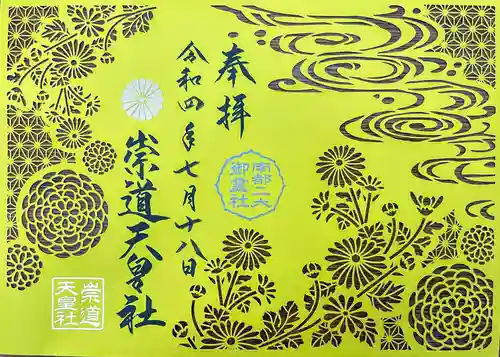 奉拝
南都二大
御霊社
令和四年七月十八日
崇道天皇社
崇道
天皇社